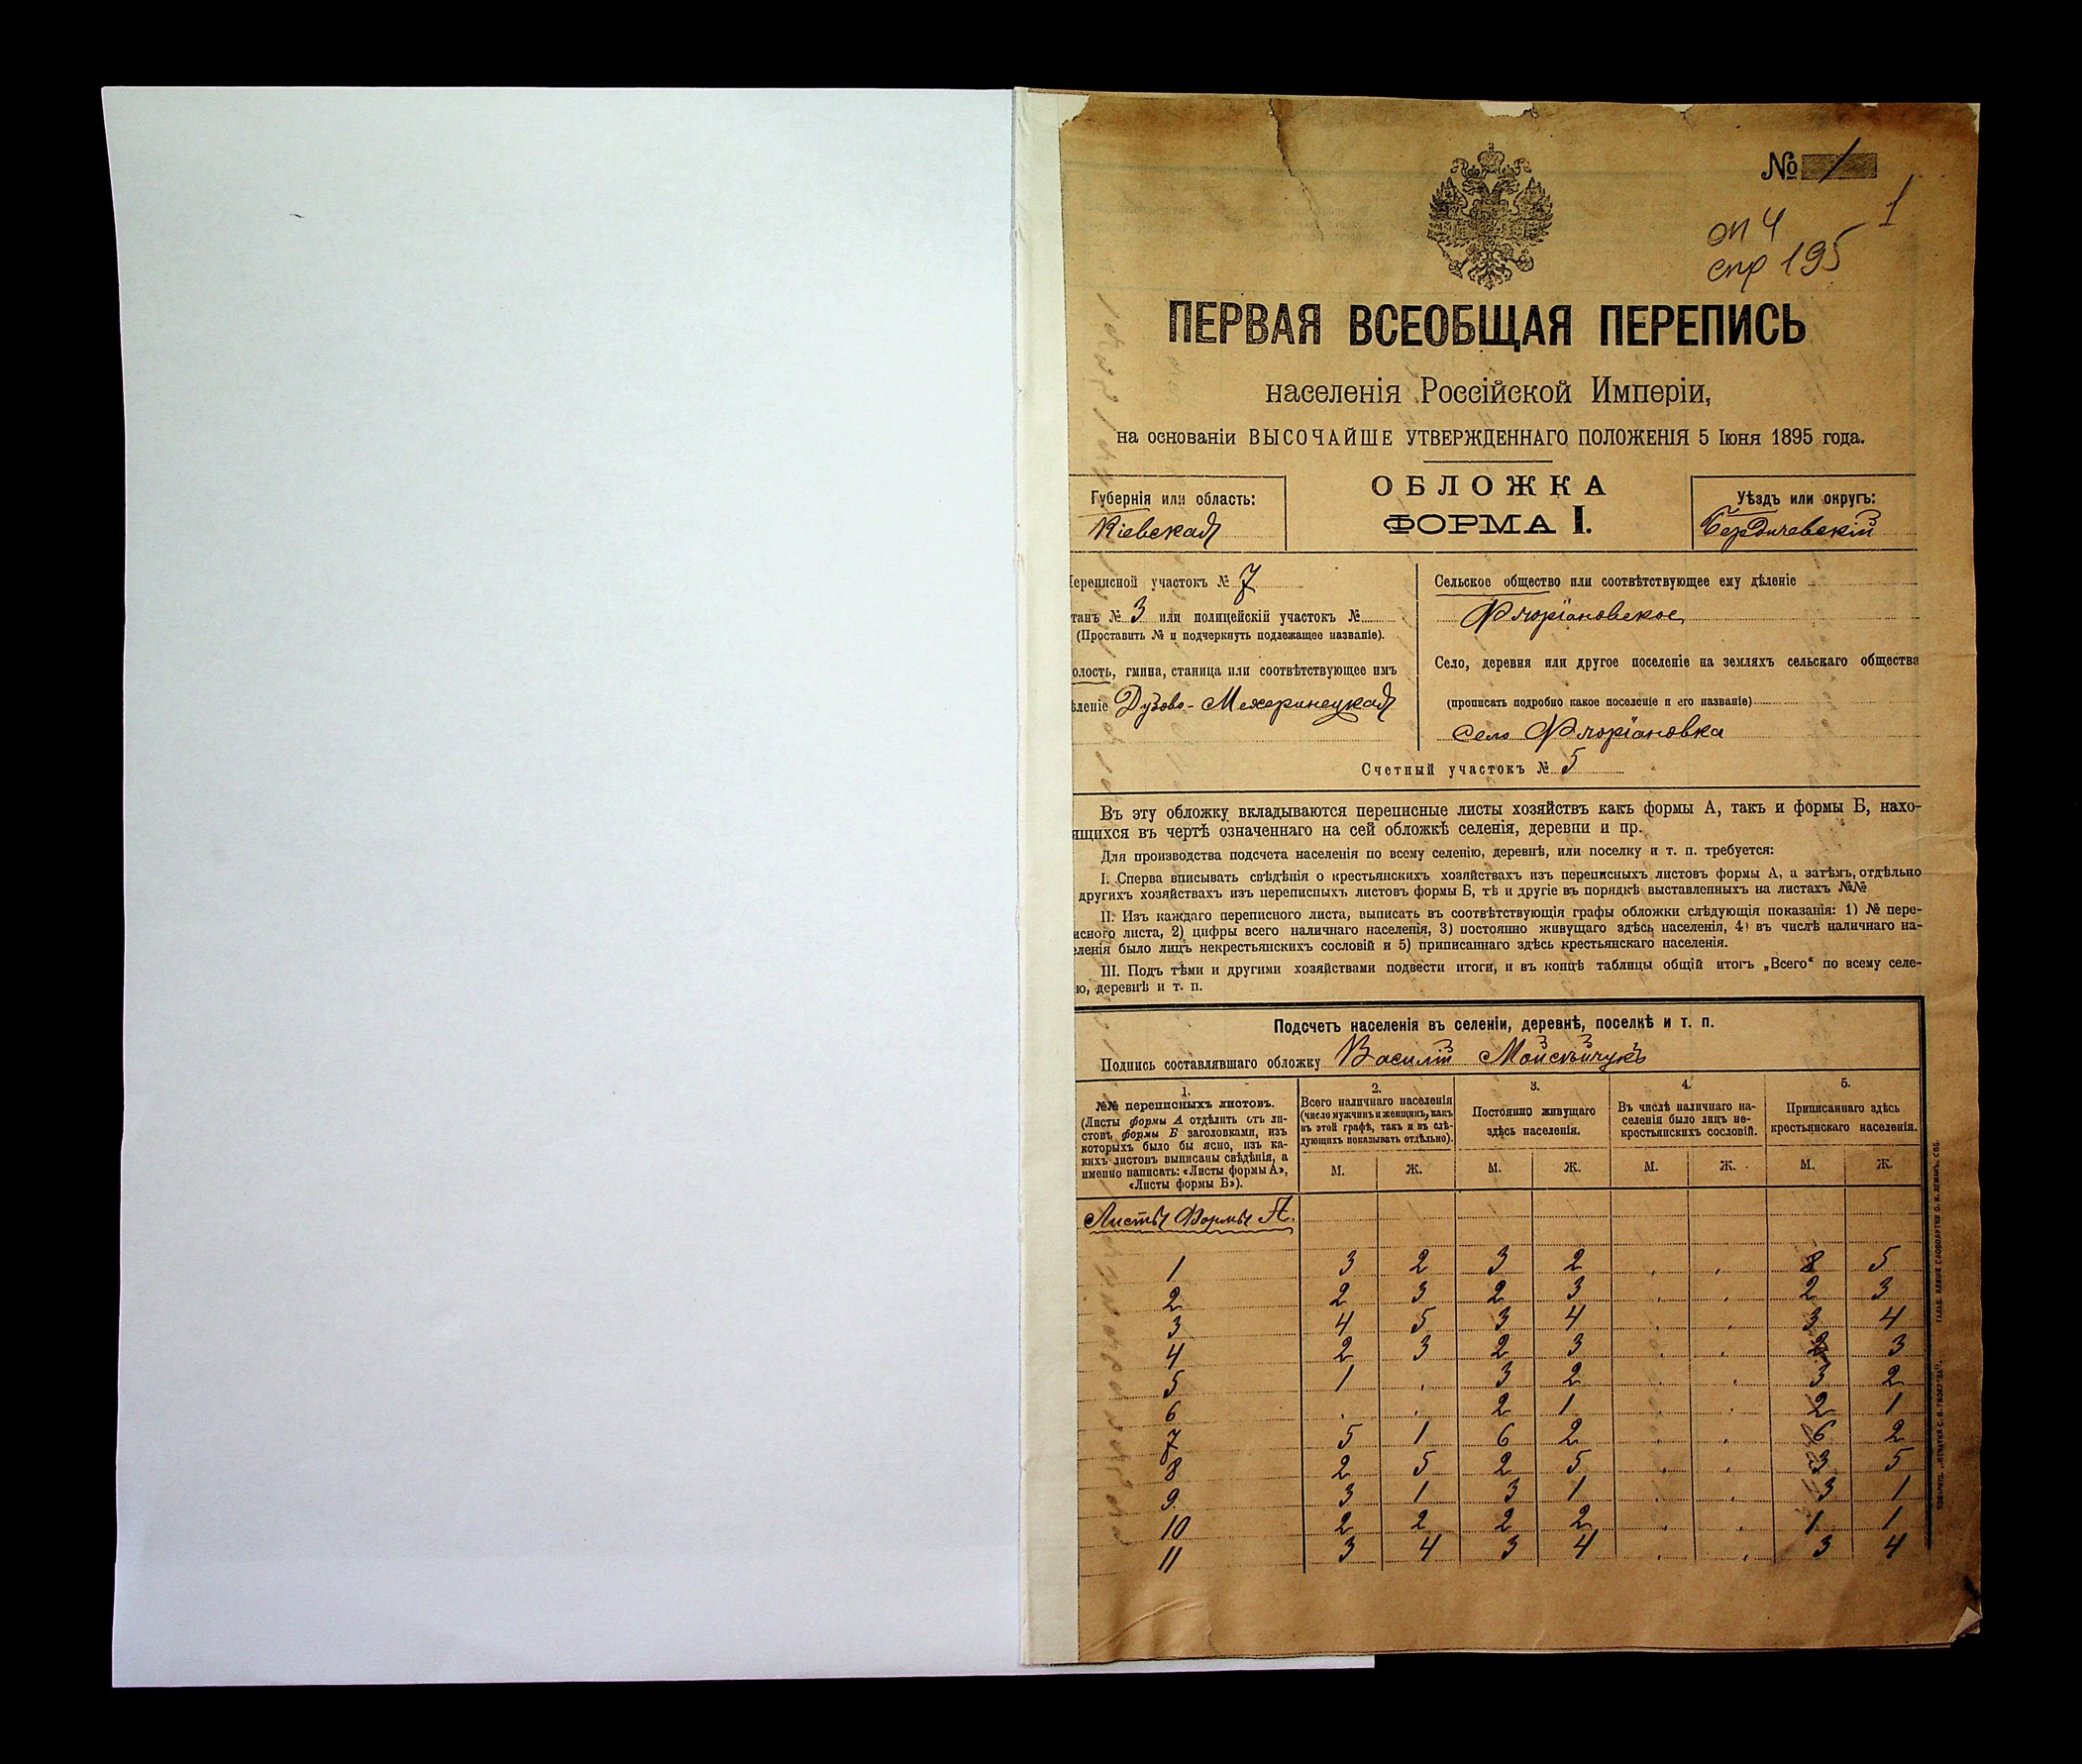 № 1
1
оп 4
спр 195
ПЕРВАЯ ВСЕОБЩАЯ ПЕРЕПИСЬ
населенія Россійской Имперіи,
на основаніи ВЫСОЧАЙШЕ УТВЕРЖДЕННАГО ПОЛОЖЕНІЯ 5 Іюня 1895 года.
Губернія или область:
Кіевская
ОБЛОЖКА
ФОРМА I.
Уѣздъ или округъ:
Бердичевскій
Переписной участокъ № 7
танъ № 3 или полицейскій участокъ №
(Проставить № и подчеркнуть подлежащее названіе).
олость, гмина, станица или соотвѣтствующее имъ
ѣленіе Дузово-Мехеринецкая
Сельское общество или соотвѣтствующее ему дѣленіе
Флоріановское
Село, деревня или другое поселеніе на земляхъ сельскаго общества
(прописать подробно какое поселеніе и его названіе)
село Флоріановка
Счетный участокъ № 5
Въ эту обложку вкладываются переписные листы хозяйствъ какъ формы А, такъ и формы Б, нахо-
ящихся въ чертѣ означеннаго на сей обложкѣ селенія, деревни и пр.
Для производства подсчета населенія по всему селенію, деревнѣ, или поселку и т. п. требуется:
I. Сперва вписывать свѣдѣнія о крестьянскихъ хозяйствахъ изъ переписныхъ листовъ формы А, а затѣмъ, отдѣльно
другихъ хозяйствахъ изъ переписныхъ листовъ формы Б, тѣ и другіе въ порядкѣ выставленныхъ на листахъ №№
II. Изъ каждаго переписного листа, выписать въ соотвѣтствующія графы обложки слѣдующія показанія: 1) № пере-
исного листа, 2) цифры всего наличнаго населенія, 3) постоянно живущаго здѣсь населенія, 4) въ числѣ наличнаго на-
еленія было лицъ некрестьянскихъ сословій и 5) приписаннаго здѣсь крестьянскаго населенія.
III. Подъ тѣми и другими хозяйствами подвести итоги, и въ концѣ таблицы общій итогъ „Всего“ по всему селе-
ю, деревнѣ и т. п.
Подсчетъ населенія въ селеніи, деревнѣ, поселкѣ и т. п.
Подпись составлявшаго обложку Василій Мойсейчукъ
1.
№№ переписныхъ листовъ.
(Листы формы А отдѣлить отъ ли-
стовъ формы Б заголовками, изъ
которыхъ было бы ясно, изъ ка-
кихъ листовъ выписаны свѣдѣнія, а
именно написать: «Листы формы А»,
«Листы формы Б»).
2.
Всего наличнаго населенія
(число мужчинъ и женщинъ, какъ
въ этой графѣ, такъ и въ слѣ-
дующихъ показывать отдѣльно).
3.
Постоянно живущаго
здѣсь населенія.
4.
Въ числѣ наличнаго на-
селенія было лицъ не-
крестьянскихъ сословій.
5.
Приписаннаго здѣсь
крестьянскаго населенія.
М. Ж. М. Ж. М. Ж. М. Ж.
Листы Формы А.
1 3 2 3 2 . . 8 5
2 2 3 2 3 . . 2 3
3 4 5 3 4 . . 3 4
4 2 3 2 3 . . 3
5 1 . 3 2 . . 3 2
6 . . 2 1 . . 2 1
7 5 1 6 2 . . 6 2
8 2 5 2 5 . . 3 5
9 3 1 3 1 . . 3 1
10 2 2 2 2 . . 1 1
11 3 4 3 4 . . 3 4